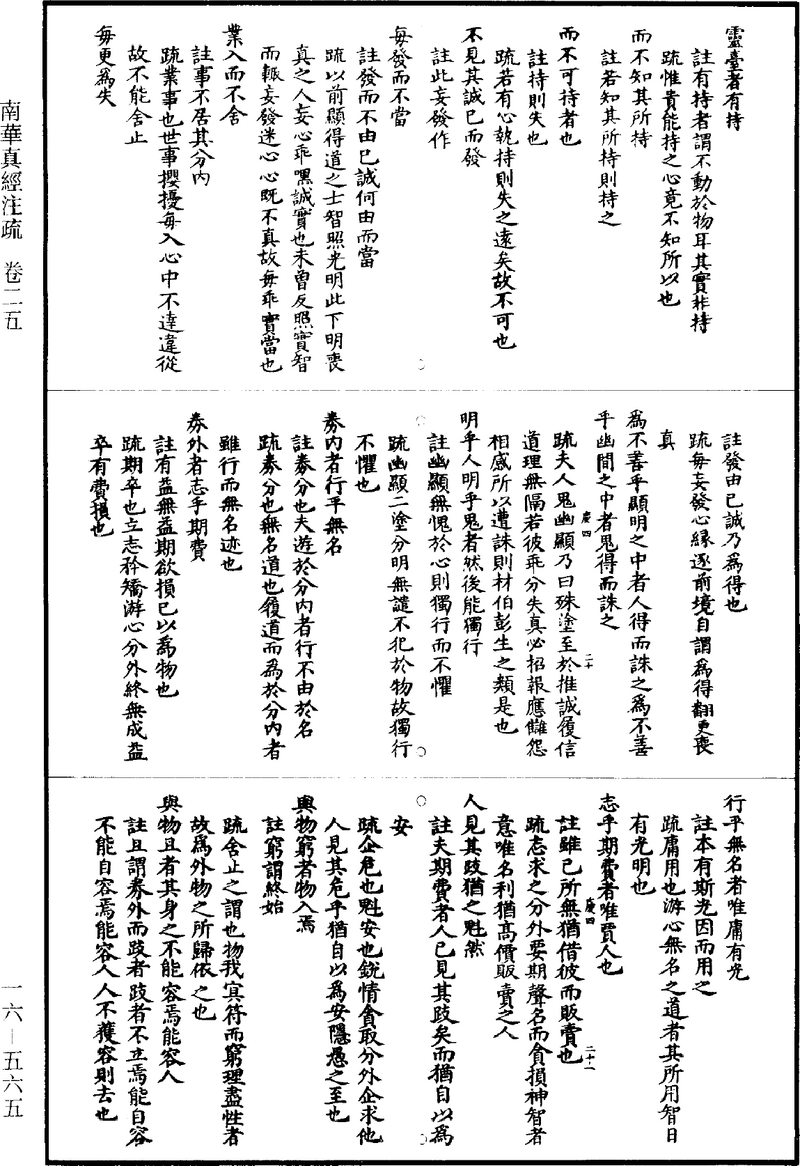 靈臺者有持
註有持者謂不動於物耳其實非持
疏惟貴能持之心竟不知所以也
而不知其所持
註若知其所持則持之
而不可持者也
註持則失也
疏若有心執持則失之遠矣故不可也
不見其誠已而發
註此妄發作
每發而不當
註發而不由已誠何由而當
疏以前顯得道之士智照光明此下明喪
真之人妄心乖𠻳誠實也未曾反照實智
而輙妄發迷心心既不真故每乖實當也
業入而不舍
註事不居其分內
疏業事也世事攖擾每入心中不達違從
故不能舍止
每更為失
註發由已誠乃為得也
疏每妄發心緣逐前境自謂為得翻更喪
真
為不善乎顯明之中者人得而誅之為不善
乎幽間之中者鬼得而誅之
疏夫人鬼幽顯乃曰殊塗至於推誠履信
道理無隔若彼乖分失真必招報應讎怨
相感所以遭誅則材伯彭生之類是也
明乎人明乎鬼者然後能獨行
註幽顯無愧於心則獨行而不懼
疏幽顯二塗分明無譴不犯於物故獨行
不懼也
券內者行乎無名
註券分也夫遊於分內者行不由於名
疏券分也無名道也履道而為於分內者
雖行而無名迹也
券外者志乎期費
註有益無益期欲損已以為物也
疏期卒也立志矜矯游心分外終無成益
卒有費損也
慶四
二十
行乎無名者唯庸有光
註本有斯光因而用之
疏庸用也游心無名之道者其所用智日
有光明也
志乎期費者唯賈人也
註雖已所無猶借彼而販賣也
疏志求之分外要期聲名而貪損神智者
意唯名利猶高價販賣之人
人見其跂猶之魁然
註夫期費者人已見其跂矣而猶自以為
安
疏企危也魁安也銳情貪取分外企求他
人見其危乎猶自以為安隱愚之至也
與物窮者物入焉
註窮謂終始
疏舍止之謂也物我冥符而窮理盡性者
故為外物之所歸依之也
與物且者其身之不能容焉能容人
註且謂券外而跂者跂者不立焉能自容
不能自容焉能容人人不獲容則去也
慶四
二十一
南華真經注疏 卷二五
一六—五六五